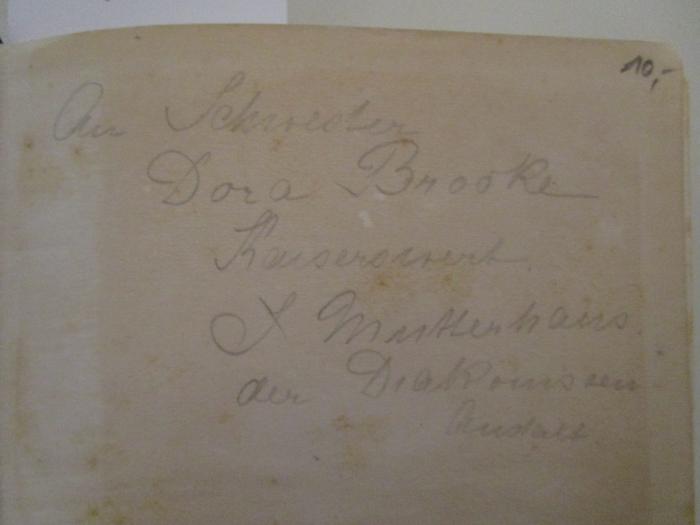 10,-
An Schwester
Dora Brooke
Kaiserswert
Mutterhaus
der Diakonissen
Anstalt